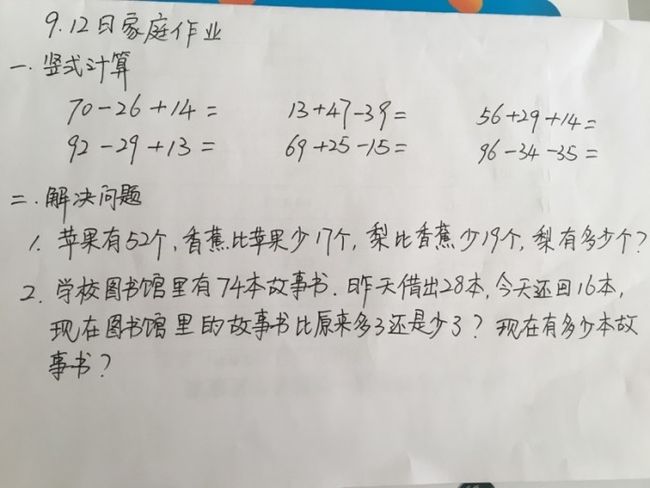 9.12日家庭作业
一.竖式计算
70-26+14= 13+47-39= 56+29+14=
92-29+13= 69+25-15= 96-34-35=
二.解决问题
1.苹果有52个,香蕉比苹果少17个,梨比香蕉少19个,梨有多少个?
2.学校图书馆里有74本故事书.昨天借出28本,今天还回16本,
现在图书馆里的故事书比原来多了还是少了?现在有多少本故
事书?